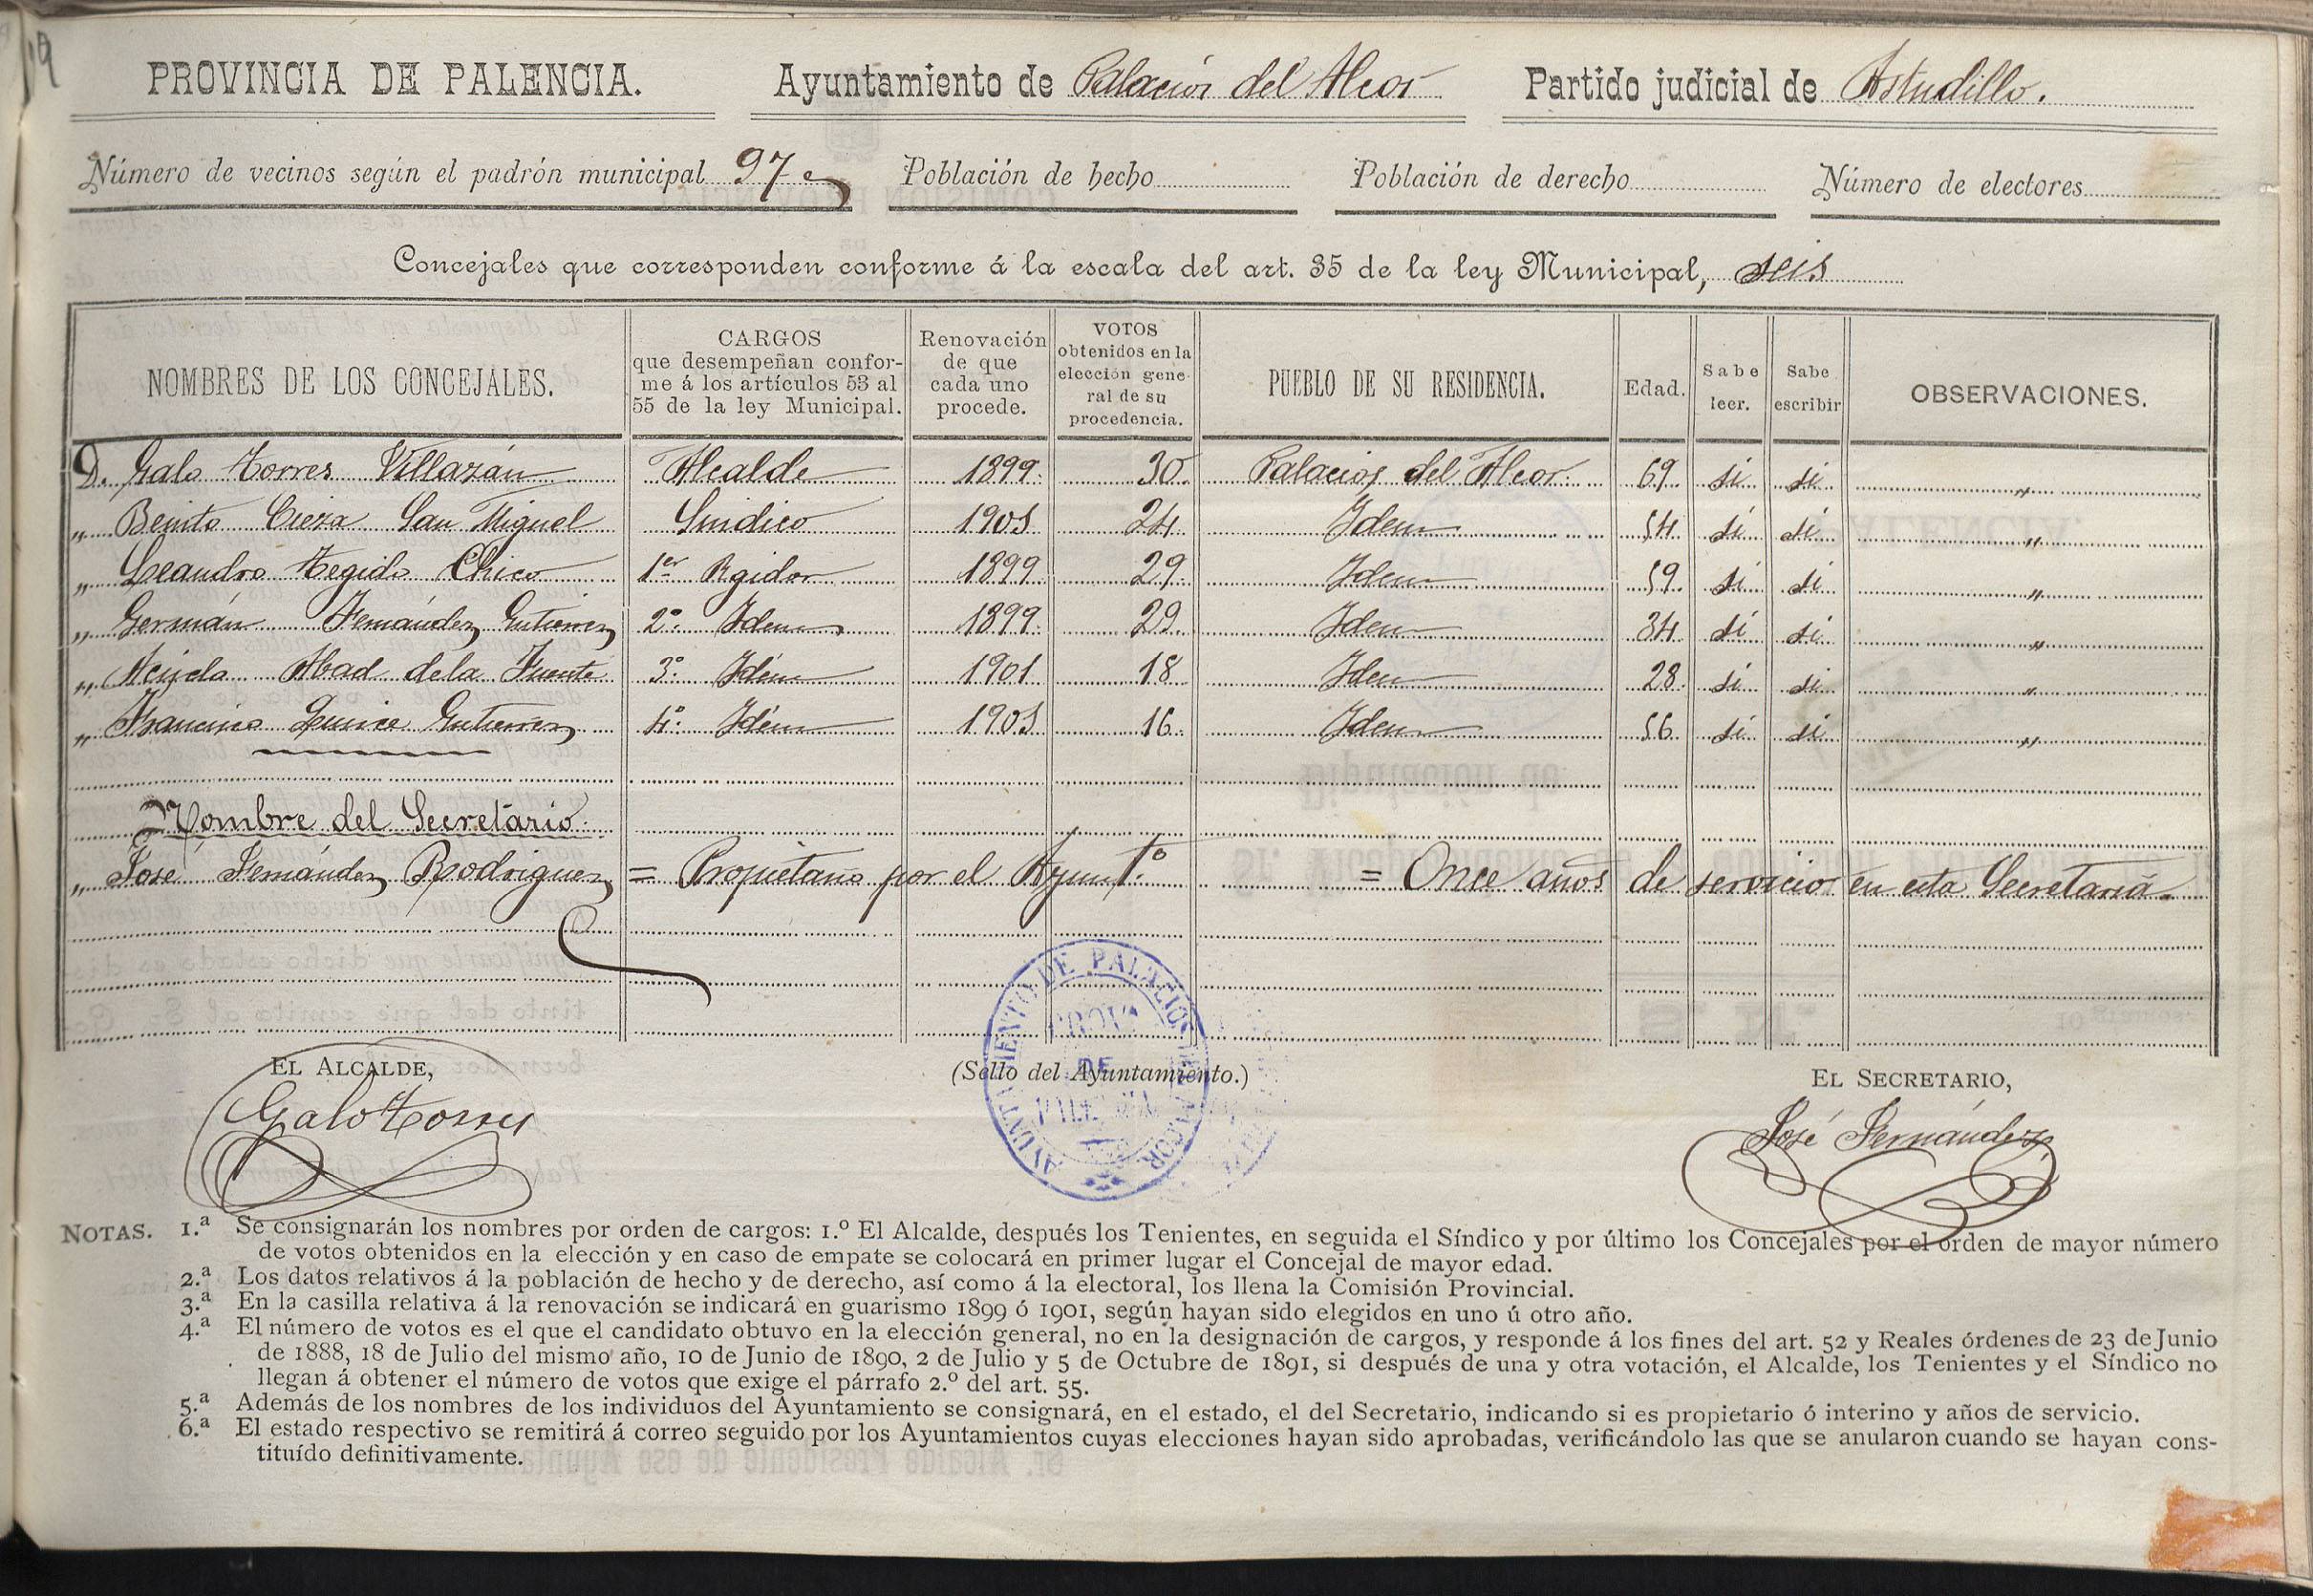 PROVINCIA DE PALENCIA. Ayuntamiento de Palacios del Alcor Partido judicial de Astudillo.
Número de vecinos según el padrón municipal 97 Población de hecho Población de derecho Número de electores
Concejales que corresponden conforme á la escala del art. 35 de la ley Municipal, seis
NOMBRES DE LOS CONCEJALES.
CARGOS
que desempeñan confor-
me á los artículos 53 al
55 de la ley Municipal.
Renovación
de que
cada uno
procede.
VOTOS
obtenidos en la
elección gene-
ral de su
procedencia.
PUEBLO DE SU RESIDENCIA.
Edad.
Sabe
leer.
Sabe
escribir
OBSERVACIONES.
D. Galo Torres Villazán Alcalde 1899. 30. Palacios del Alcor 69 si si "
" Benito Cieza San Miguel Sindico 1901 24. Idem 54 si si "
" Leandro Tegido Chico 1er Rgidor 1899 29. Idem 59. si si "
" Germán Fernández Gutierrez 2º Idem 1899. 29. Idem 34 si si "
" Abad de la Fuente 3º Idém 1901 18 Idem 28 si si "
" Francisco Gutierrez 4º Idém 1901 16. Idem 56 si si "
Nombre del Secretario.
" José Fernández Rodriguez = Propietario por el Ayuntº = Once años de servicio en esta Secretaria.
EL ALCALDE, (Sello del Ayuntamiento.) EL SECRETARIO,
Galo Torres
José Fernández
AYUNTAMIENTO DE PALACIOS DEL ALCOR
PROVª
DE
PALENCIA
NOTAS. 1.ª Se consignarán los nombres por orden de cargos: 1.º El Alcalde, después los Tenientes, en seguida el Síndico y por último los Concejales por el orden de mayor número
de votos obtenidos en la elección y en caso de empate se colocará en primer lugar el Concejal de mayor edad.
2.ª Los datos relativos á la población de hecho y de derecho, así como á la electoral, los llena la Comisión Provincial.
3.ª En la casilla relativa á la renovación se indicará en guarismo 1899 ó 1901, según hayan sido elegidos en uno ú otro año.
4.ª El número de votos es el que el candidato obtuvo en la elección general, no en la designación de cargos, y responde á los fines del art. 52 y Reales órdenes de 23 de Junio
de 1888, 18 de Julio del mismo año, 10 de Junio de 1890, 2 de Julio y 5 de Octubre de 1891, si después de una y otra votación, el Alcalde, los Tenientes y el Síndico no
llegan á obtener el número de votos que exige el párrafo 2.º del art. 55.
5.ª Además de los nombres de los individuos del Ayuntamiento se consignará, en el estado, el del Secretario, indicando si es propietario ó interino y años de servicio.
6.ª El estado respectivo se remitirá á correo seguido por los Ayuntamientos cuyas elecciones hayan sido aprobadas, verificándolo las que se anularon cuando se hayan cons-
tituído definitivamente.